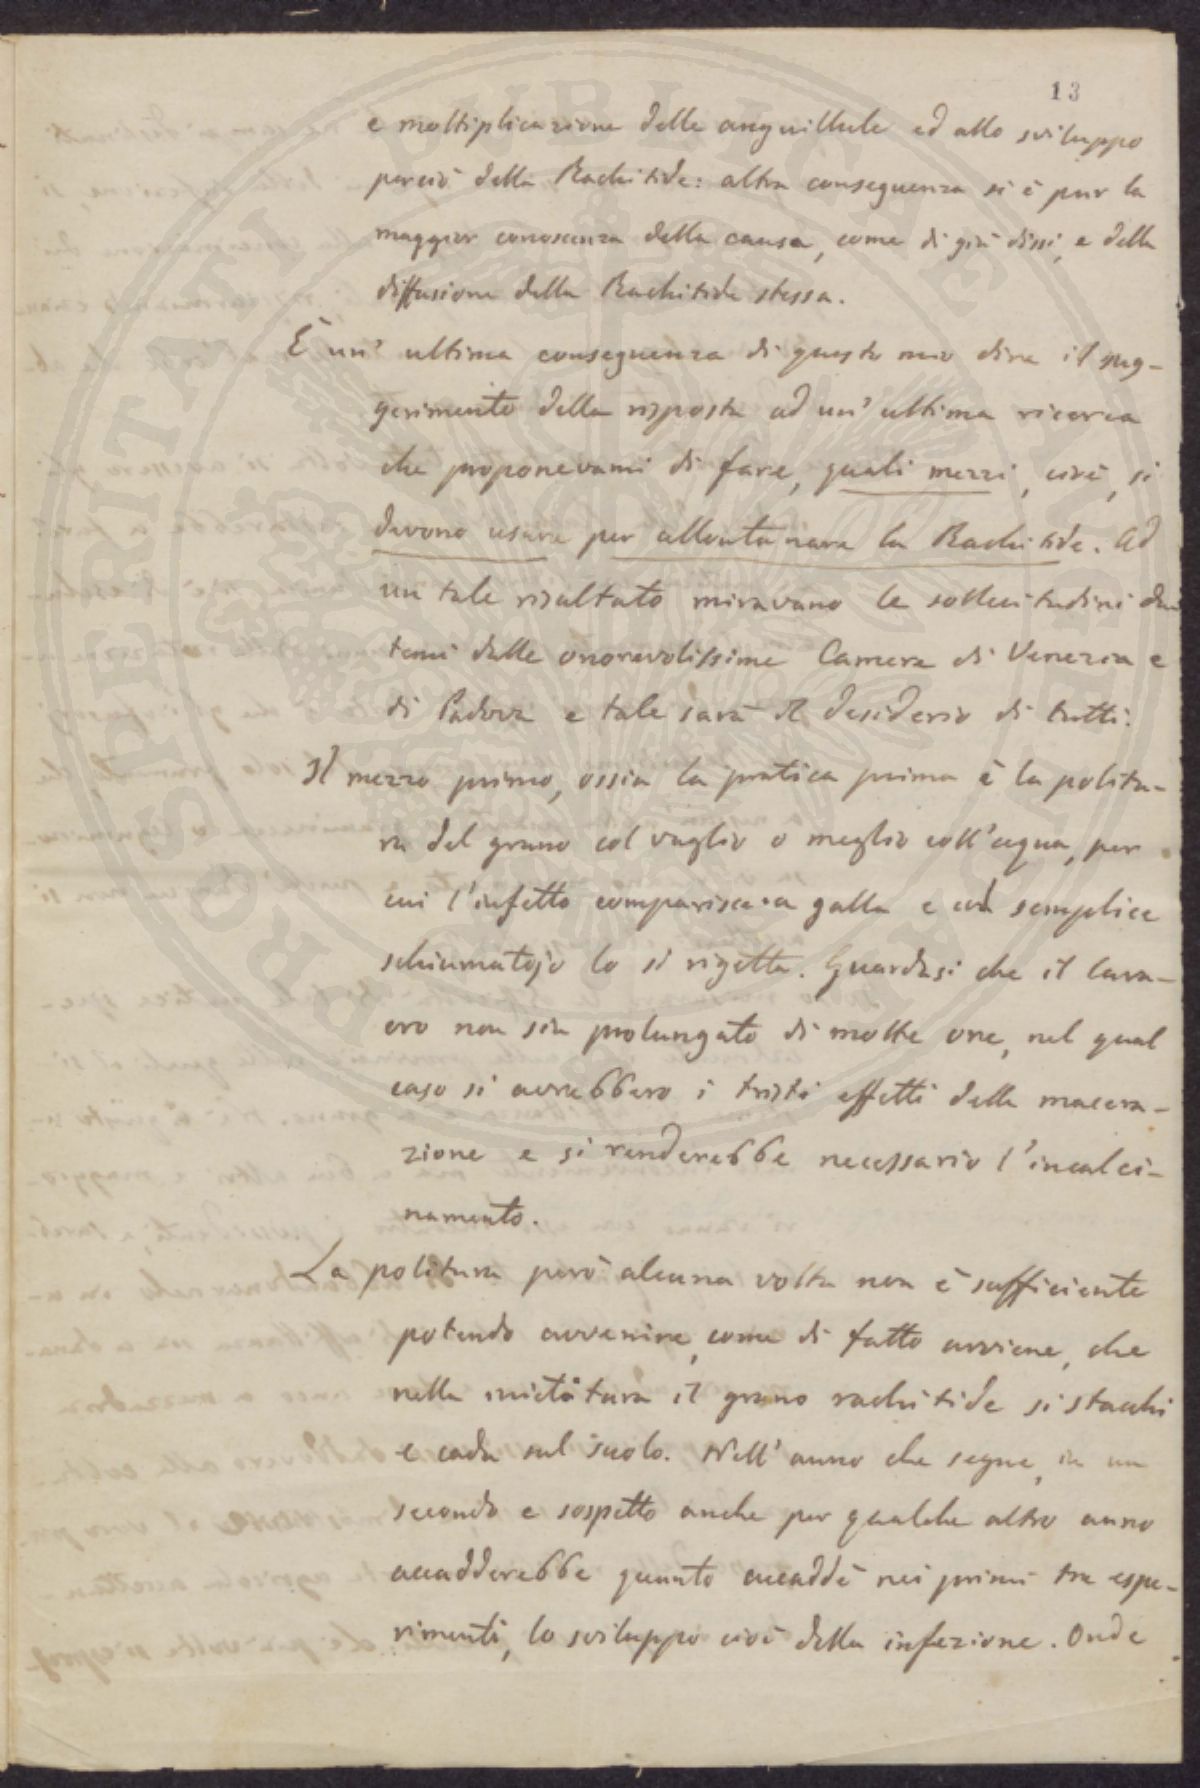 13
e moltiplicazione delle anguillule ed allo sviluppo
perciò della Rachitide: altra conseguenza si è pur la
maggior conoscenza della causa, come di già dissi, e della
diffusione della Rachitide stessa.
È un' ultima conseguenza di questo mio dire il sug-
gerimento della risposta ad un' ultima ricerca
che proponevami di fare, quali mezzi, cioè, si
devono usare per allontanare la Rachitide. Ad
un tale risultato miravano le sollecitudini dei
temi delle onorevolissime Camere di Venezia e
di Padova e tale sarà il desiderio di tutti.
Il mezzo primo, ossia la pratica prima è la politu-
ra del grano col vaglio o meglio coll'acqua, per
cui l'infetto comparisce a galla e con semplice
schiumatojo lo si rigetta. Guardisi che il lava-
cro non sia prolungato di molte ore, nel qual
caso si avrebbero i tristi effetti della macera-
zione e si renderebbe necessario l'incalci-
namento.
La politura però alcuna volta non è sufficiente
potendo avvenire, come di fatto avviene, che
nella mietitura il grano rachitide si stacchi
e cada sul suolo. Nell' anno che segue, in un
secondo e sospetto anche per qualche altro anno
accadderebbe quanto accaddè nei primi tre espe-
rimenti, lo sviluppo cioè della infezione. Onde
PROSPERITATI PUBLICAE AUGENDAE